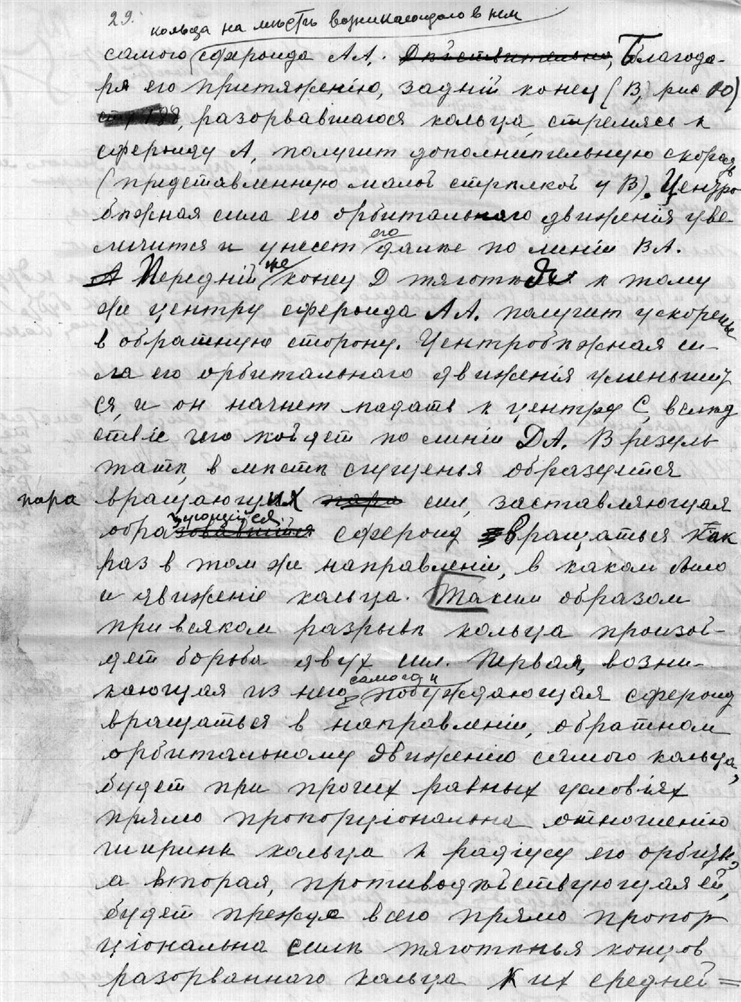 29.
кольца на мѣстѣ возникающаго в нем
самого сфероида АА. Дѣйствительно, Благода-
ря его притяженію, задній конец (В, рис 10)
разорвавшагося кольца, стремясь к
сфероиду А, получит дополнительную скорость
(представленную малой стрѣлкой у В). Центро
бѣжная сила его орбитальнаго движенія уве-
личится и унесет его далѣе по линіи ВА.
А Передній же конец D тяготѣя к тому
же центру сфероида АА. получит ускоренье
в обратную сторону. Центробѣжная си-
ла его орбитальнаго движенія уменьшит
ся, и он начнет падать к центру С, вслѣд
ствіе чего пойдет по линіи DА. В резуль
татѣ, в мѣстѣ сгущенья образуется
пара вращающих пара сил, заставляющая
образующійся сфероид вращаться как
раз в том же направленіи, в каком было
и движеніе кольца. Таким образом
при всяком разрывѣ кольца произой-
дет борьба двух сил. Первая, возни-
кающая из него самого и побуждающая сфероид
вращаться в направленіи, обратном
орбитальному движенію самого кольца,
будет при прочих равных условіях
прямо пропорціональна отношенію
ширины кольца к радіусу его орбиты,
а вторая, противодѣйствующая ей,
будет прежде всего прямо пропор
ціональна силѣ тяготѣнья концов
разорваннаго кольца к их средней =